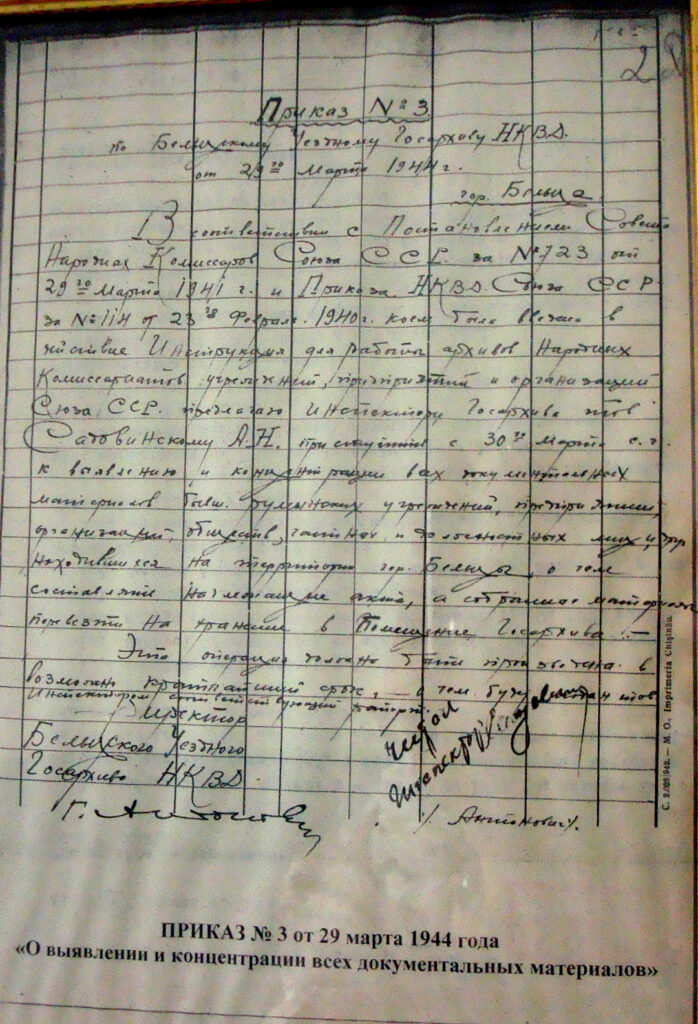 2
Приказ № 3
по Бельцкому Уездному Госархиву НКВД.
от 29го Марта 1944 г.
гор. Бельцы
В соответствии с Постановлением Совета
Народных Комиссаров Союза ССР. за № 723 от
29го Марта 1941 г. и Приказа НКВД Союза ССР
за № 114 от 23го Февраля. 1940 г. коем было введено в
действие Инструкция для работы архивов Народных
Комиссариатов, учреждений, предприятий и организаций
Союза ССР. предлагаю Инспектору Госархива тов
Садовинскому А.Н. приступить с 30го Марта с.г.
к выявлению и концентрации всех документальных
материалов бывш. румынских учреждений, предприятий,
организаций, обществ, частных и должностных лиц, и др
находившихся на территории гор. Бельцы, о чем
составлять надлежащие акты, а собранное материалы
перевезти на хранение в Помещение Госархива. —
Эта операция должна быть произведена в
возможно кратчайший срок, — о чем тов
Инспектором соответствующий рапорт.
Директор
Бельцкого Уездного
Госархива НКВД
Читал
Инспектор
Г. Антонович
/ Антонович /.
С. 2.026/942. — М. О. Imprimeria Chişinău.
ПРИКАЗ № 3 от 29 марта 1944 года
«О выявлении и концентрации всех документальных материалов»